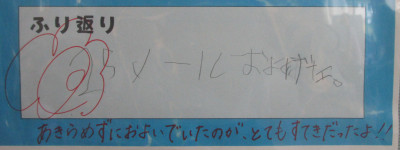 ふり返り
25メールおよげた。
あきらめずにおよいでいたのが、とてもすてきだったよ!!